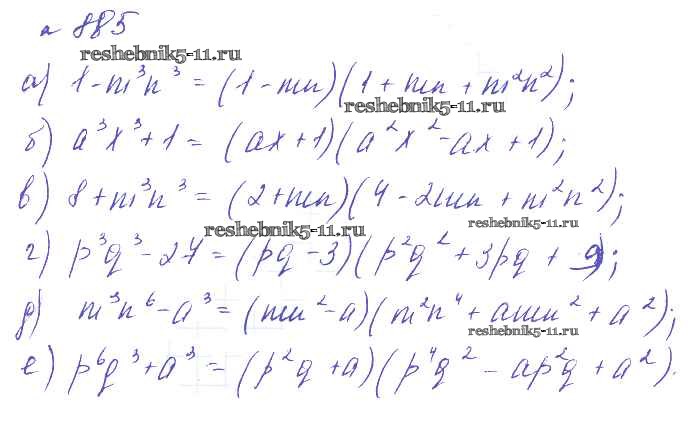 № 885
reshebnik5-11.ru
а) 1 - m³n³ = (1 - mn)(1 + mn + m²n²);
reshebnik5-11.ru
б) a³x³ + 1 = (ax + 1)(a²x² - ax + 1);
в) 8 + m³n³ = (2 + mn)(4 - 2mn + m²n²);
reshebnik5-11.ru
reshebnik5-11.ru
г) p³q³ - 27 = (pq - 3)(p²q² + 3pq + 9);
д) m³n⁶ - a³ = (mn² - a)(m²n⁴ + amn² + a²);
reshebnik5-11.ru
е) p⁶q³ + a³ = (p²q + a)(p⁴q² - ap²q + a²).